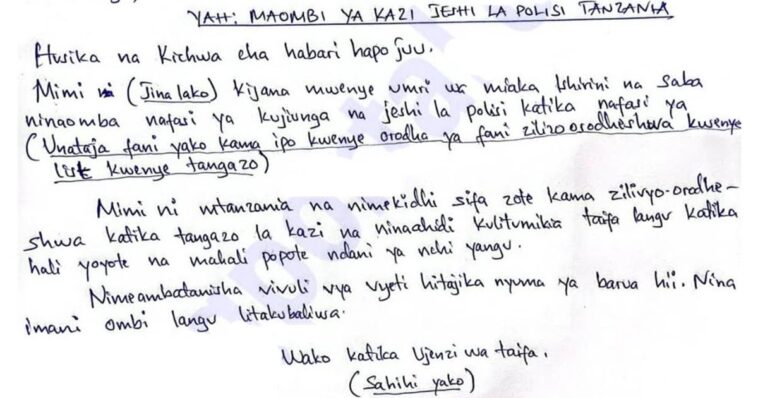 YAH: MAOMBI YA KAZI JESHI LA POLISI TANZANIA
Husika na kichwa cha habari hapo juu.
Mimi ni (Jina lako) kijana mwenye umri wa miaka Ishirini na saba
ninaomba nafasi ya kujiunga na jeshi la polisi katika nafasi ya
(Unataja fani yako kama ipo kwenye orodha ya fani zilizoorodheshwa kwenye
list kwenye tangazo)
Mimi ni mtanzania na nimekidhi sifa zote kama zilivyo-orodhe-
shwa katika tangazo la kazi na ninaahidi kulitumikia taifa langu katika
hali yoyote na mahali popote ndani ya nchi yangu.
Nimeambatanisha vivuli vya vyeti hitajika nyuma ya barua hii. Nina
imani ombi langu litakubaliwa.
Wako katika Ujenzi wa taifa.
(Sahihi yako)